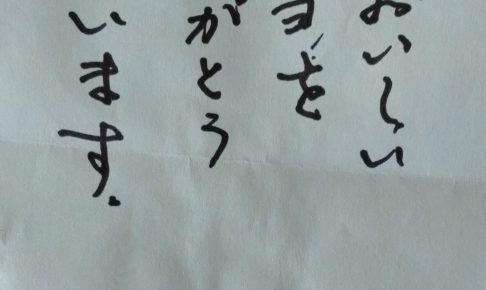 おいしい
を
がとう
います。